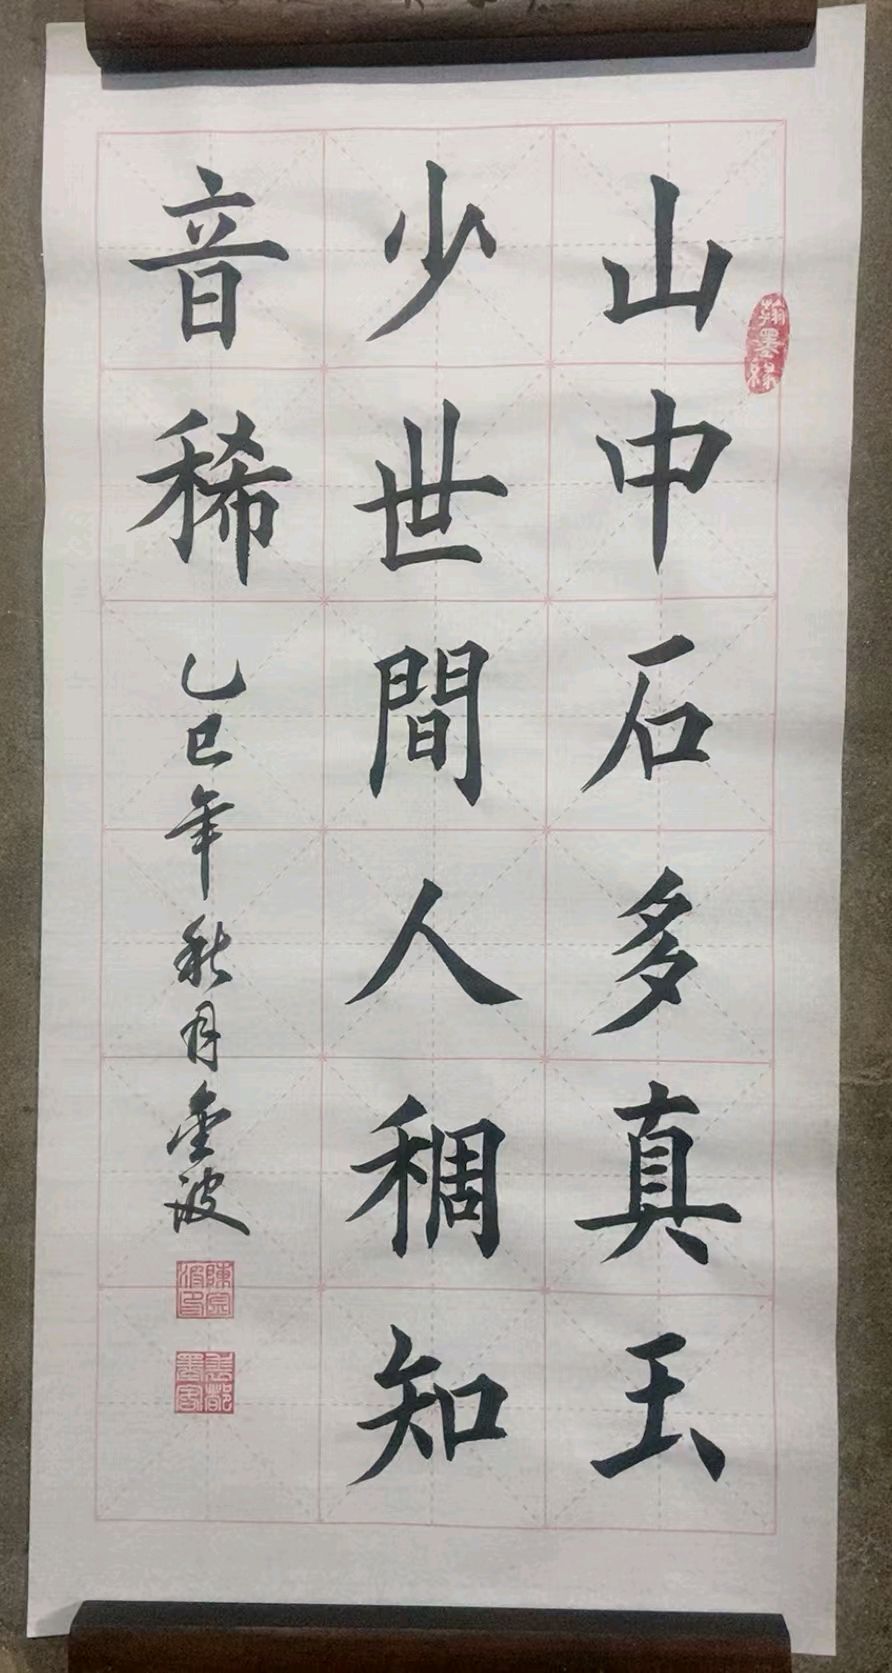 山中石多真玉
少世間人稠知
音稀
乙巳年秋月金波
翰墨缘